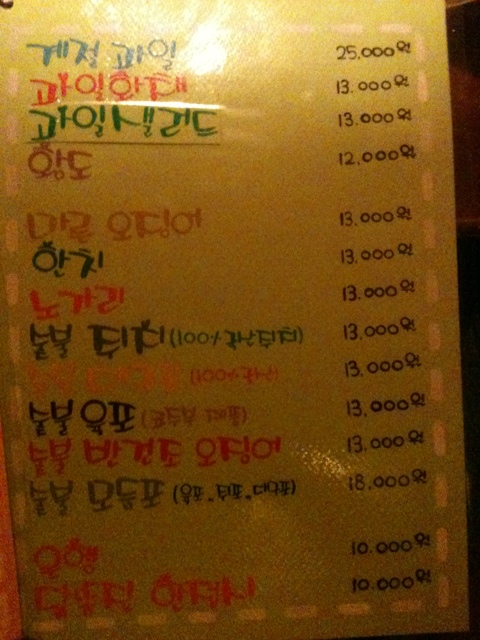 계절 과일 25,000원
과일화채 13,000원
과일샐러드 13,000원
황도 12,000원
마른 오징어 13,000원
한치 13,000원
노가리 13,000원
숯불 쥐치 (100% 국산쥐치) 13,000원
숯불 (100% 국산) 13,000원
숯불 육포 13,000원
숯불 반건조 오징어 13,000원
숯불 모듬포 18,000원
은행 10,000원
10,000원